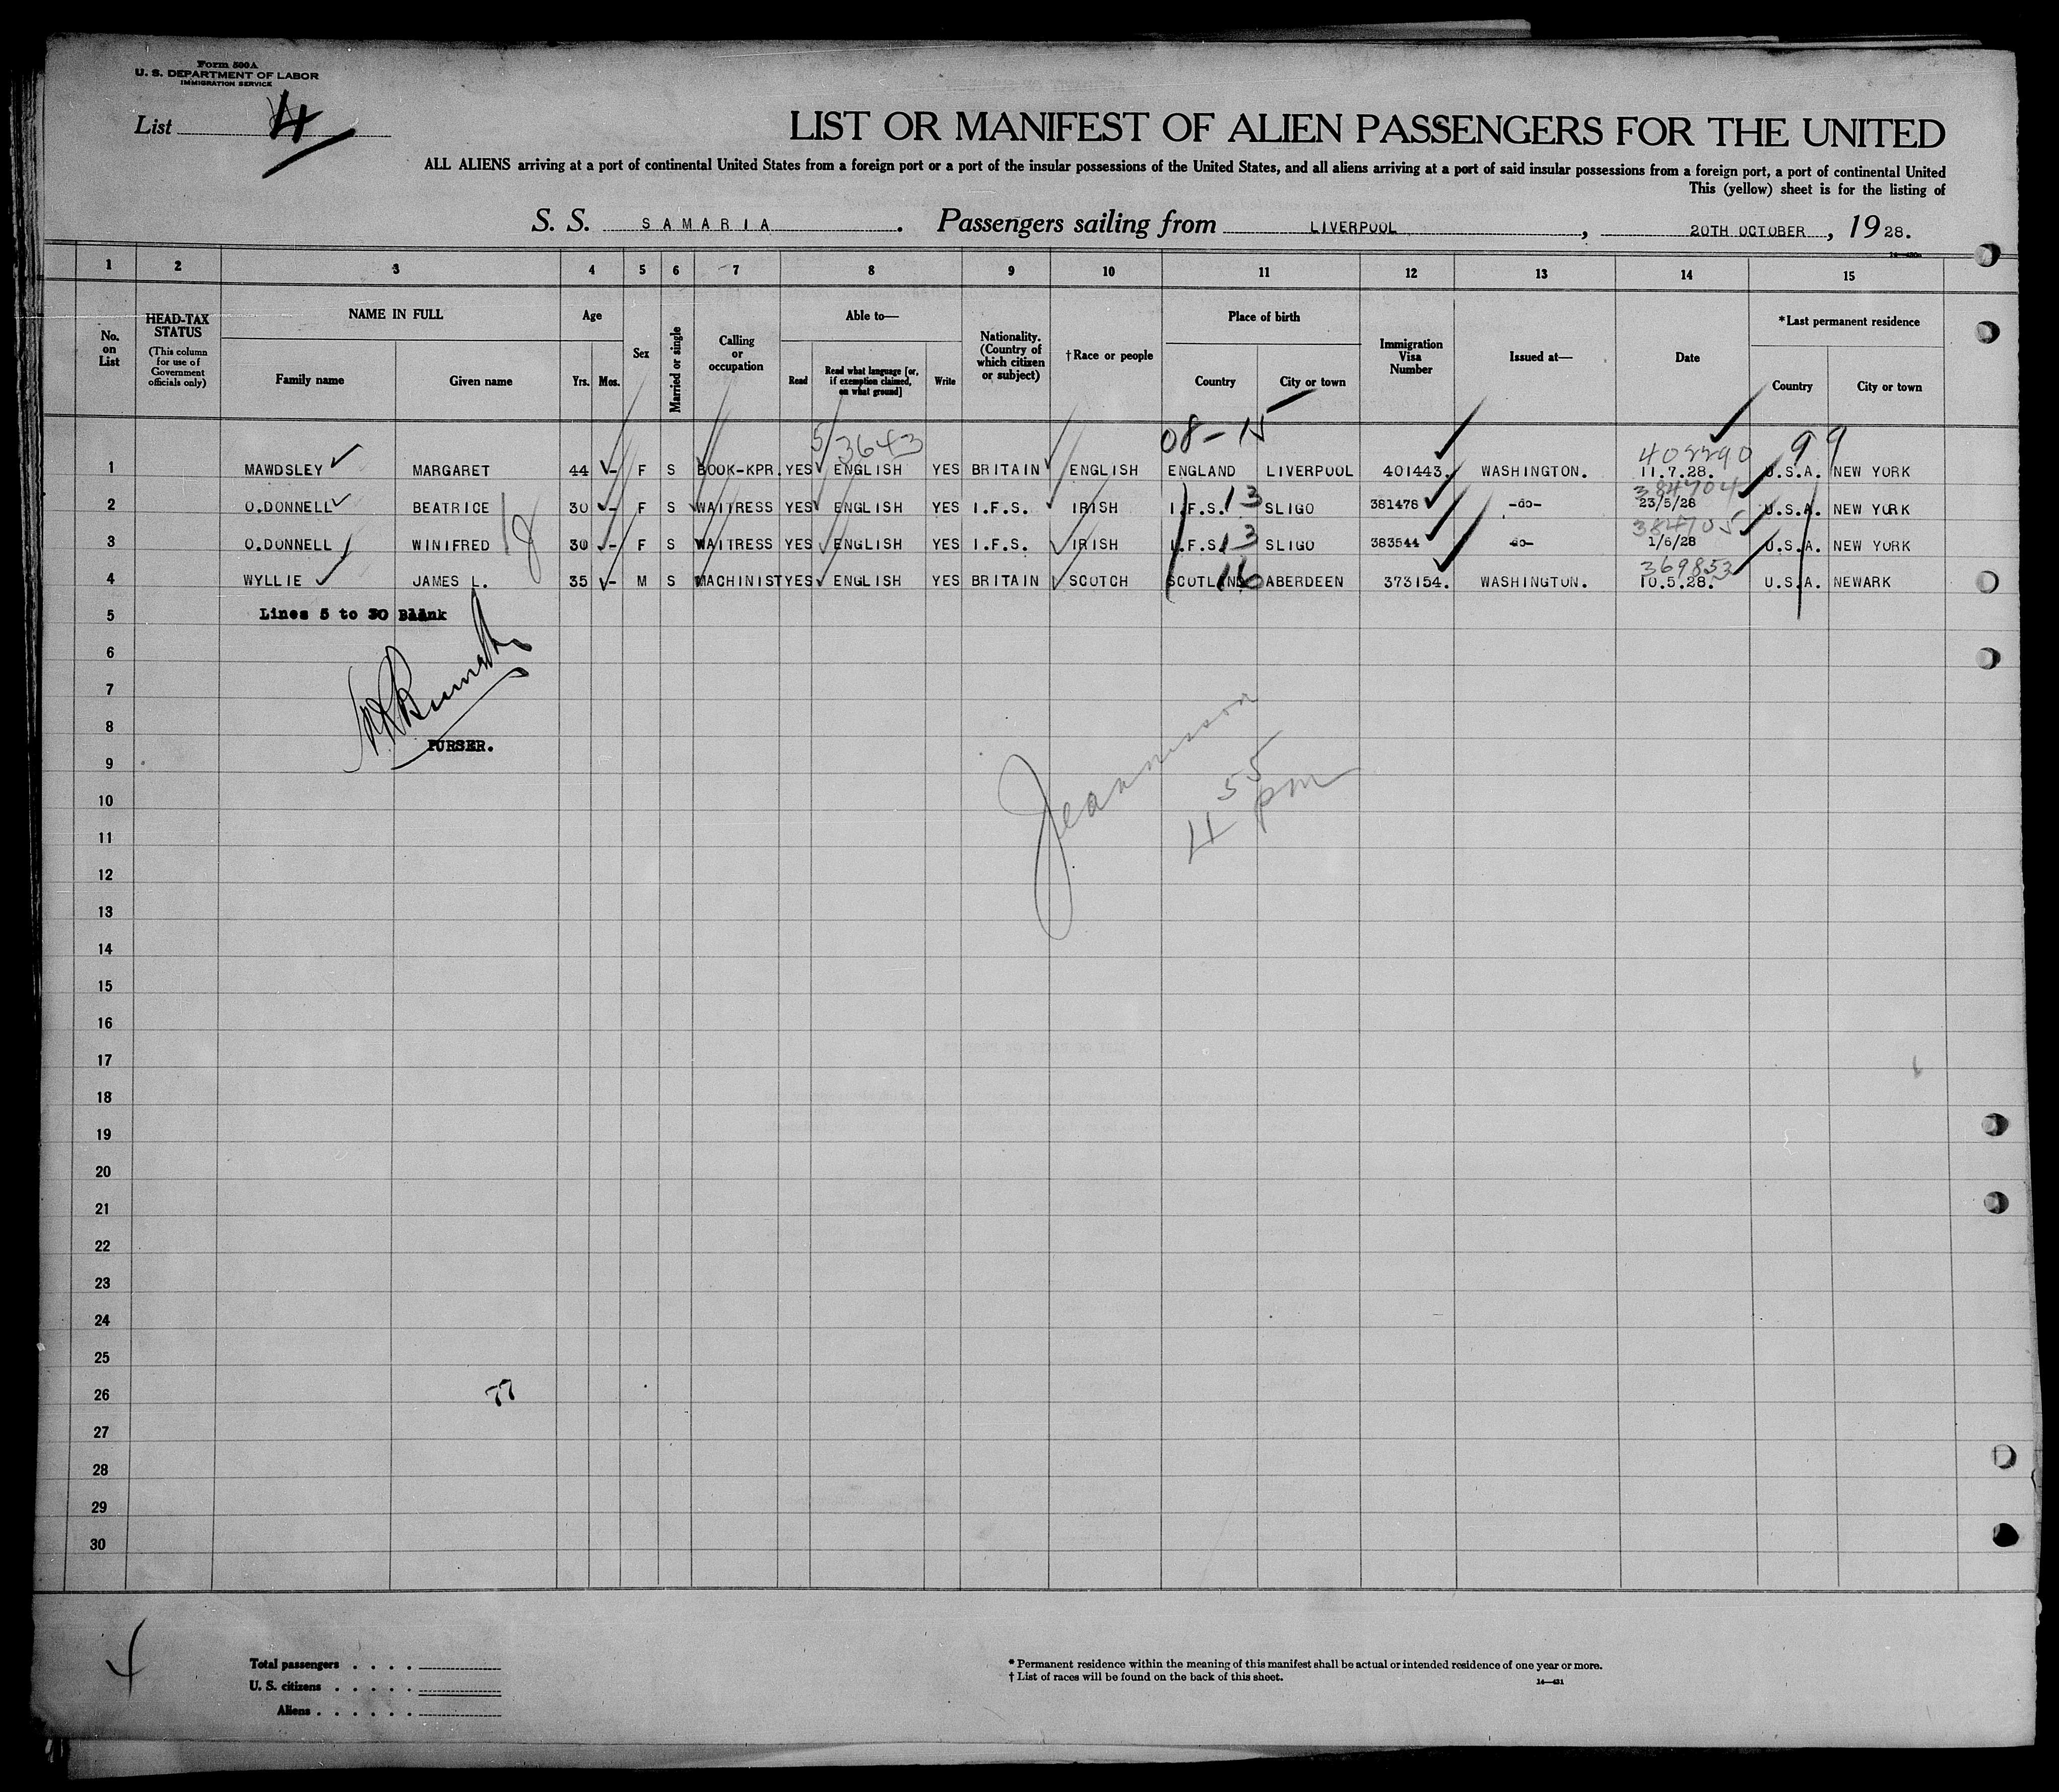 Form 500A
U. S. DEPARTMENT OF LABOR
IMMIGRATION SERVICE
List 4
LIST OR MANIFEST OF ALIEN PASSENGERS FOR THE UNITED
ALL ALIENS arriving at a port of continental United States from a foreign port or a port of the insular possessions of the United States, and all aliens arriving at a port of said insular possessions from a foreign port, a port of continental United
This (yellow) sheet is for the listing of
S. S. SAMARIA. Passengers sailing from LIVERPOOL, 20TH OCTOBER, 1928.
1 2 3 4 5 6 7 8 9 10 11 12 13 14 15
No. on List
HEAD-TAX STATUS
(This column for use of Government officials only)
NAME IN FULL
Family name Given name
Age
Yrs. Mos.
Sex
Married or single
Calling or occupation
Able to—
Read
Read what language [or, if exemption claimed, on what ground]
Write
Nationality. (Country of which citizen or subject)
†Race or people
Place of birth
Country City or town
Immigration Visa Number
Issued at—
Date
*Last permanent residence
Country City or town
08-15
5/3643 402290 99
1 MAWDSLEY MARGARET 44 - F S BOOK-KPR. YES ENGLISH YES BRITAIN ENGLISH ENGLAND LIVERPOOL 401443. WASHINGTON. 11.7.28. U.S.A. NEW YORK
384704
2 O.DONNELL BEATRICE 30 - F S WAITRESS YES ENGLISH YES I.F.S. IRISH I.F.S. 13 SLIGO 381478 -do- 23/5/28 U.S.A. NEW YORK
384705
3 O.DONNELL WINIFRED 30 - F S WAITRESS YES ENGLISH YES I.F.S. IRISH I.F.S. 13 SLIGO 383544 -do- 1/6/28 U.S.A. NEW YORK
18
369853
4 WYLLIE JAMES L. 35 - M S MACHINIST YES ENGLISH YES BRITAIN SCOTCH SCOTLAND 16 ABERDEEN 373154. WASHINGTON. 10.5.28. U.S.A. NEWARK
5 Lines 5 to 30 Blank
6
7
8
PURSER.
9
10
4 55 pm
11
12
13
14
15
16
17
18
19
20
21
22
23
24
25
26 77
27
28
29
30
Total passengers . . . .
U. S. citizens . . . . .
Aliens . . . . . .
* Permanent residence within the meaning of this manifest shall be actual or intended residence of one year or more.
† List of races will be found on the back of this sheet.
14—431